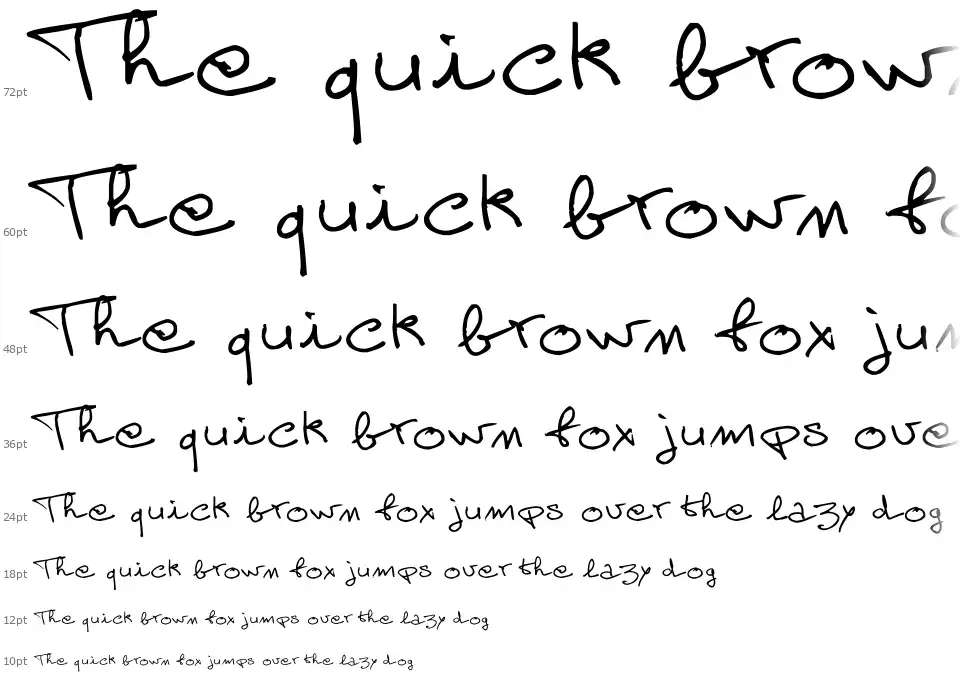 72pt The quick brow
60pt The quick brown fo
48pt The quick brown fox jum
36pt The quick brown fox jumps ove
24pt The quick brown fox jumps over the lazy dog
18pt The quick brown fox jumps over the lazy dog
12pt The quick brown fox jumps over the lazy dog
10pt The quick brown fox jumps over the lazy dog